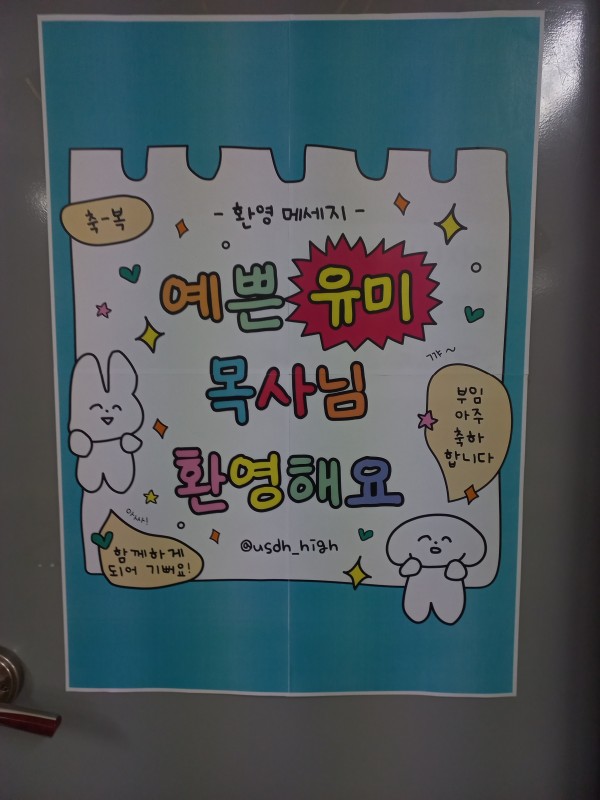 축-복
- 환영 메세지 -
예쁜 유미
목사님
환영해요
꺄~
부임
아주
축하
합니다
아싸!
함께하게
되어 기뻐요!
@usdh_high